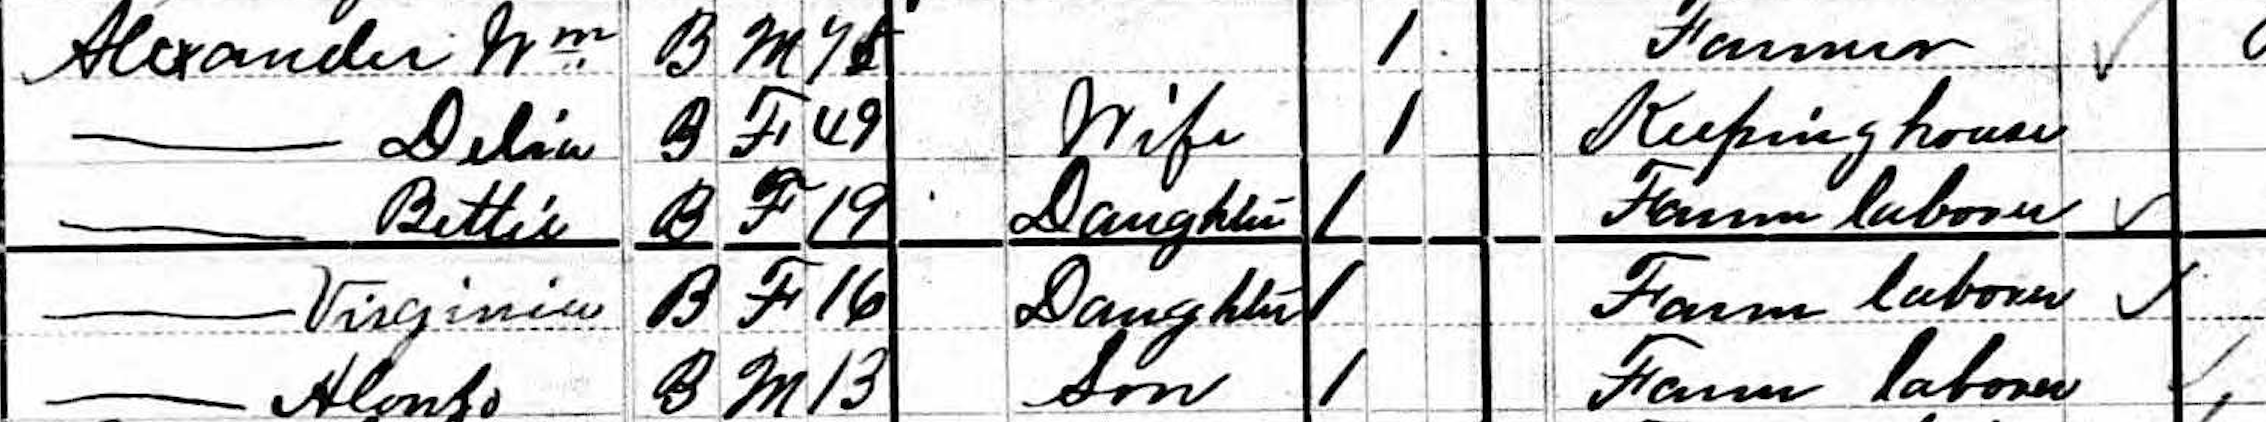 Alexander Wm B M 75 1 Farmer
— Delia B F 49 Wife 1 Keeping house
— Bettie B F 19 Daughter 1 Farm laborer
— Virginia B F 16 Daughter 1 Farm laborer
— Alonzo B M 13 Son 1 Farm laborer